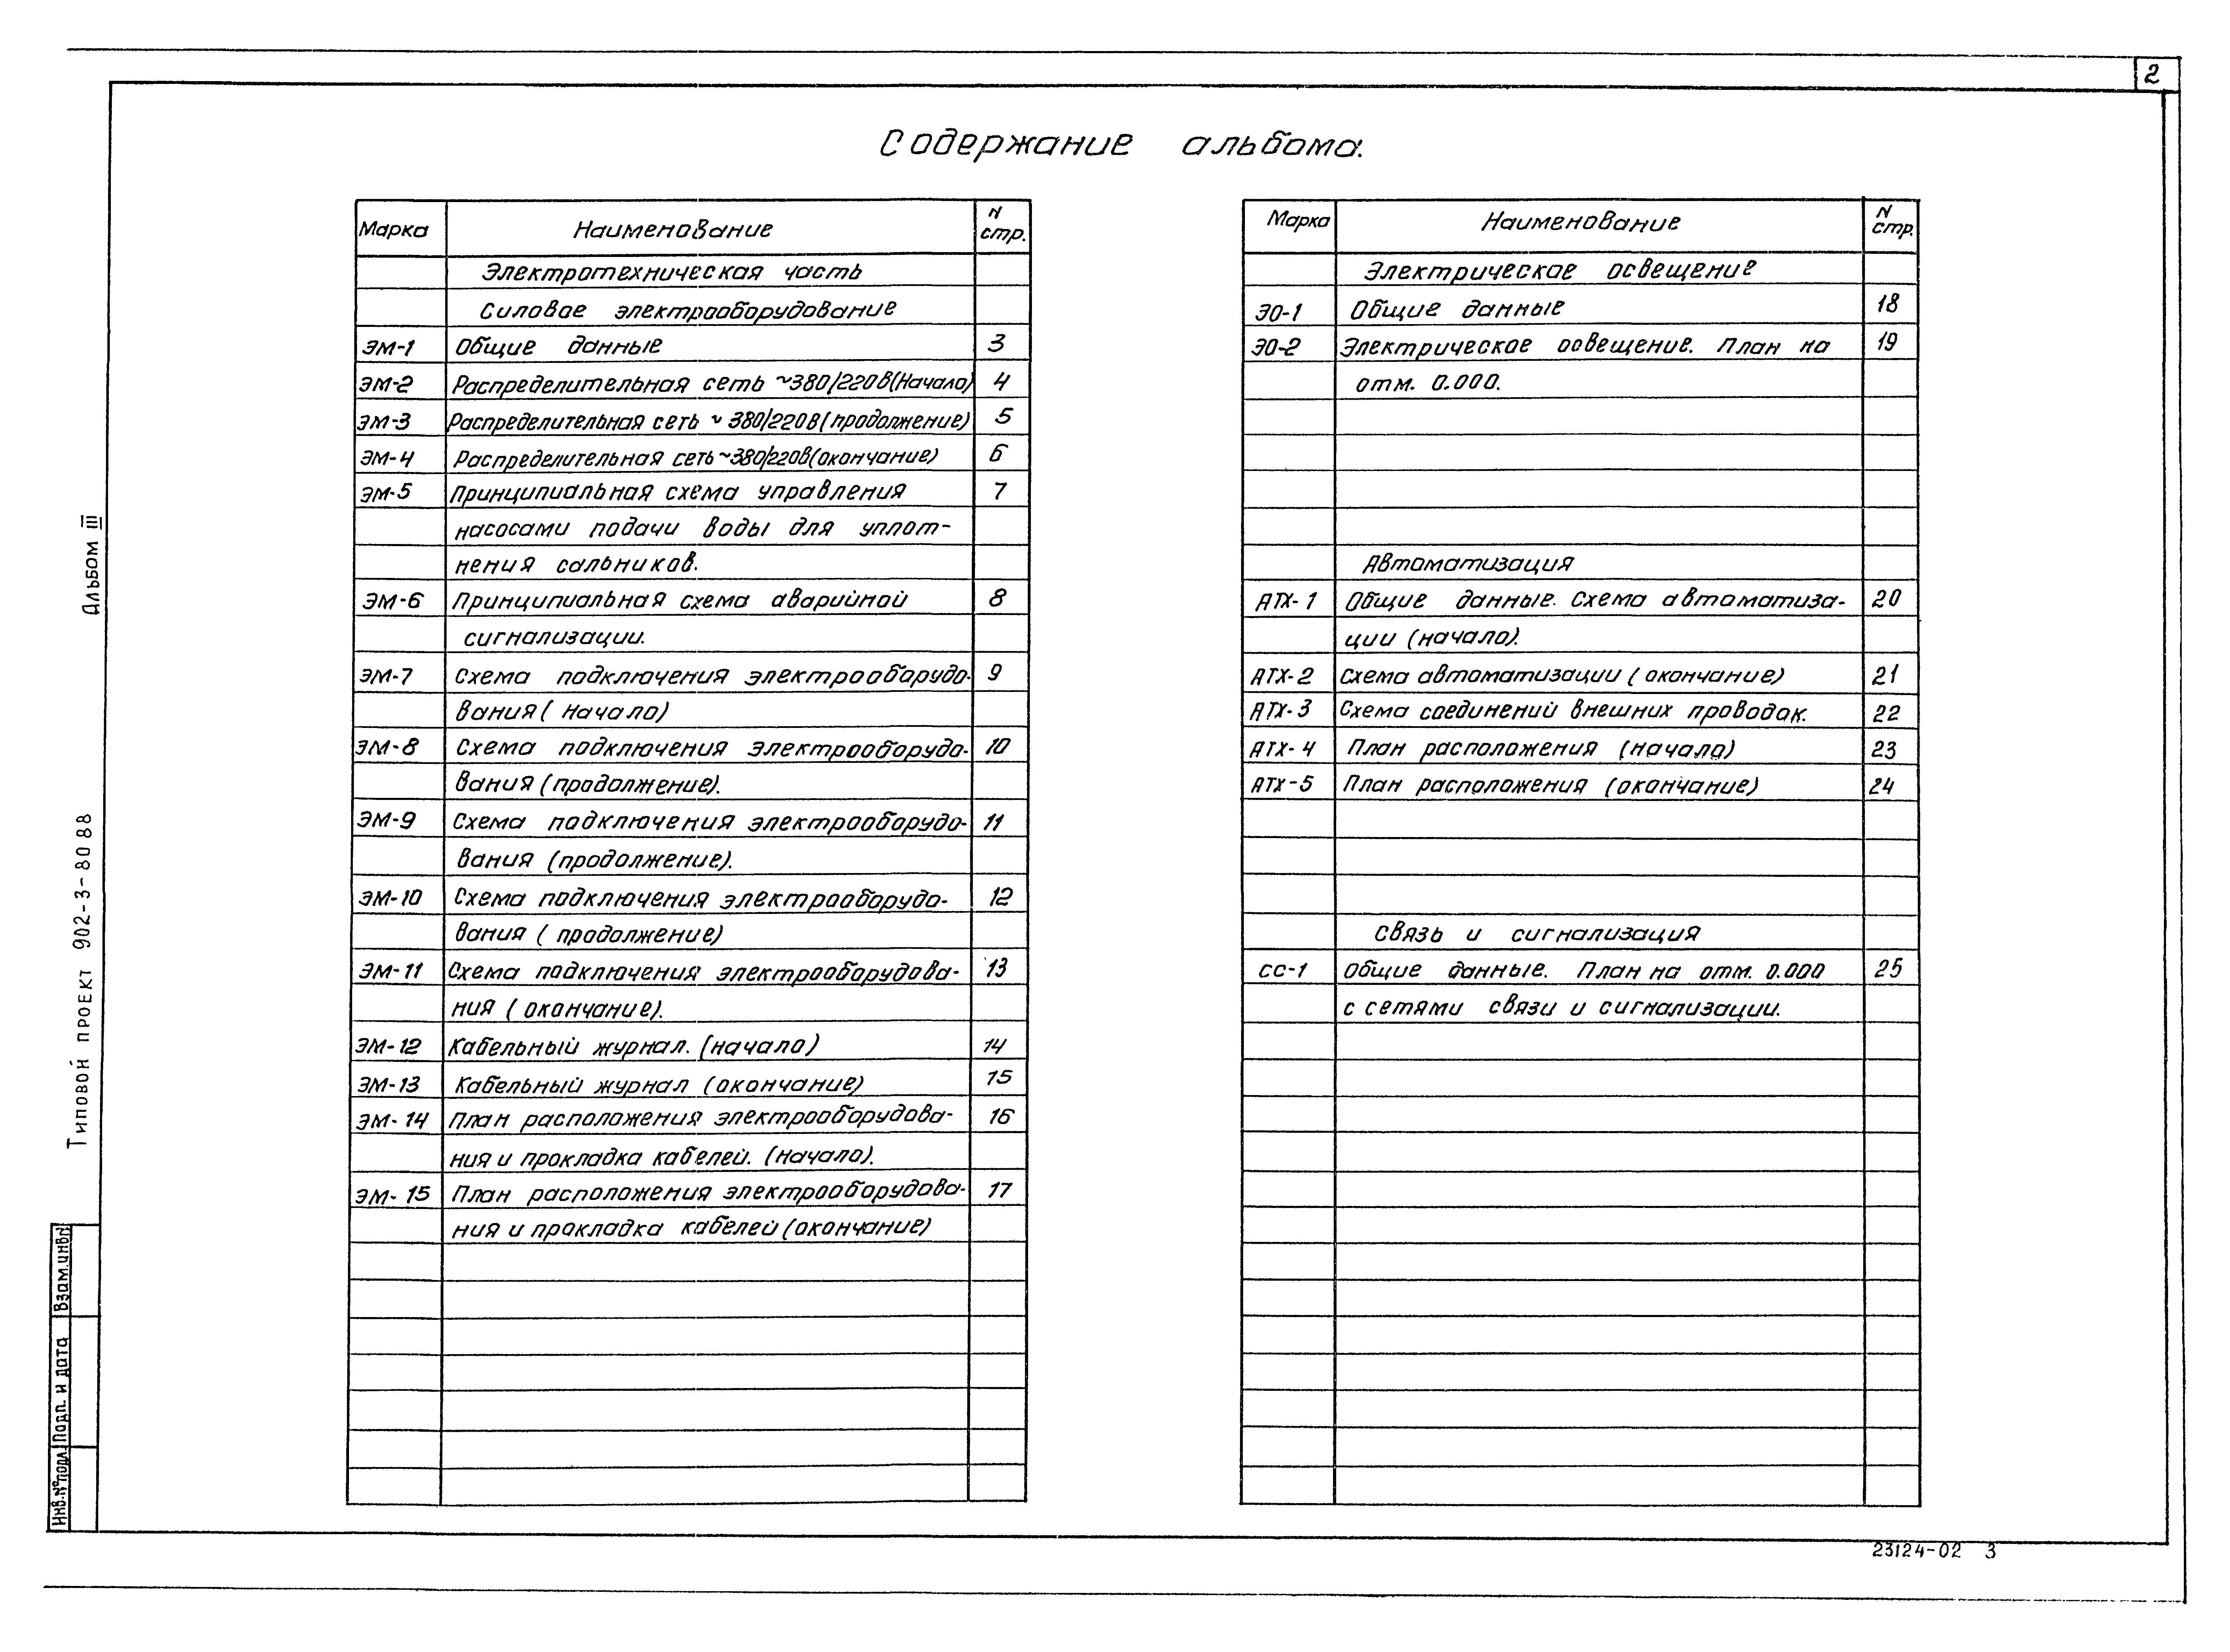 2
Содержание альбома.
Марка Наименование N стр.
Электротехническая часть
Силовое электрооборудование
ЭМ-1 Общие данные 3
ЭМ-2 Распределительная сеть ~380/220В (начало) 4
ЭМ-3 Распределительная сеть ~380/220В (продолжение) 5
ЭМ-4 Распределительная сеть ~380/220В (окончание) 6
ЭМ-5 Принципиальная схема управления 7
насосами подачи воды для уплот-
нения сальников.
ЭМ-6 Принципиальная схема аварийной 8
сигнализации.
ЭМ-7 Схема подключения электрооборудо- 9
вания (начало)
ЭМ-8 Схема подключения электрооборудо- 10
вания (продолжение).
ЭМ-9 Схема подключения электрооборудо- 11
вания (продолжение).
ЭМ-10 Схема подключения электрооборудо- 12
вания (продолжение)
ЭМ-11 Схема подключения электрооборудова- 13
ния (окончание).
ЭМ-12 Кабельный журнал. (начало) 14
ЭМ-13 Кабельный журнал (окончание) 15
ЭМ-14 План расположения электрооборудова- 16
ния и прокладка кабелей. (начало).
ЭМ-15 План расположения электрооборудова- 17
ния и прокладка кабелей (окончание)
Марка Наименование N стр.
Электрическое освещение
ЭО-1 Общие данные 18
ЭО-2 Электрическое освещение. План на 19
отм. 0.000.
Автоматизация
АТХ-1 Общие данные. Схема автоматиза- 20
ции (начало).
АТХ-2 Схема автоматизации (окончание) 21
АТХ-3 Схема соединений внешних проводок. 22
АТХ-4 План расположения (начало) 23
АТХ-5 План расположения (окончание) 24
Связь и сигнализация
СС-1 Общие данные. План на отм. 0.000 25
с сетями связи и сигнализации.
Альбом III
Типовой проект 902-3-80 88
Взам.инв.N
Подп. и дата
Инв.№ подл.
23124-02 3